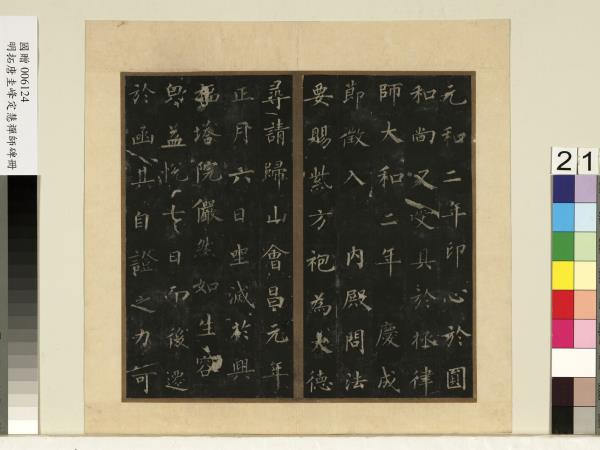 元和二年印心於圓
和尚又受具於拯律
師大和二年慶成
節徵入內殿問法
要賜紫方袍為大德
尋請歸山會昌元年
正月六日坐滅於興
福塔院儼然如生容
貌益悅七日而後遷
於函其自證之力可
國贈 006124
明拓唐圭峰定慧禪師碑冊
2 1